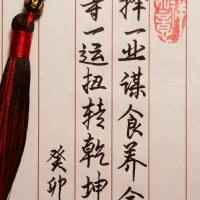 择一业谋食养命
等一运扭转乾坤
癸卯